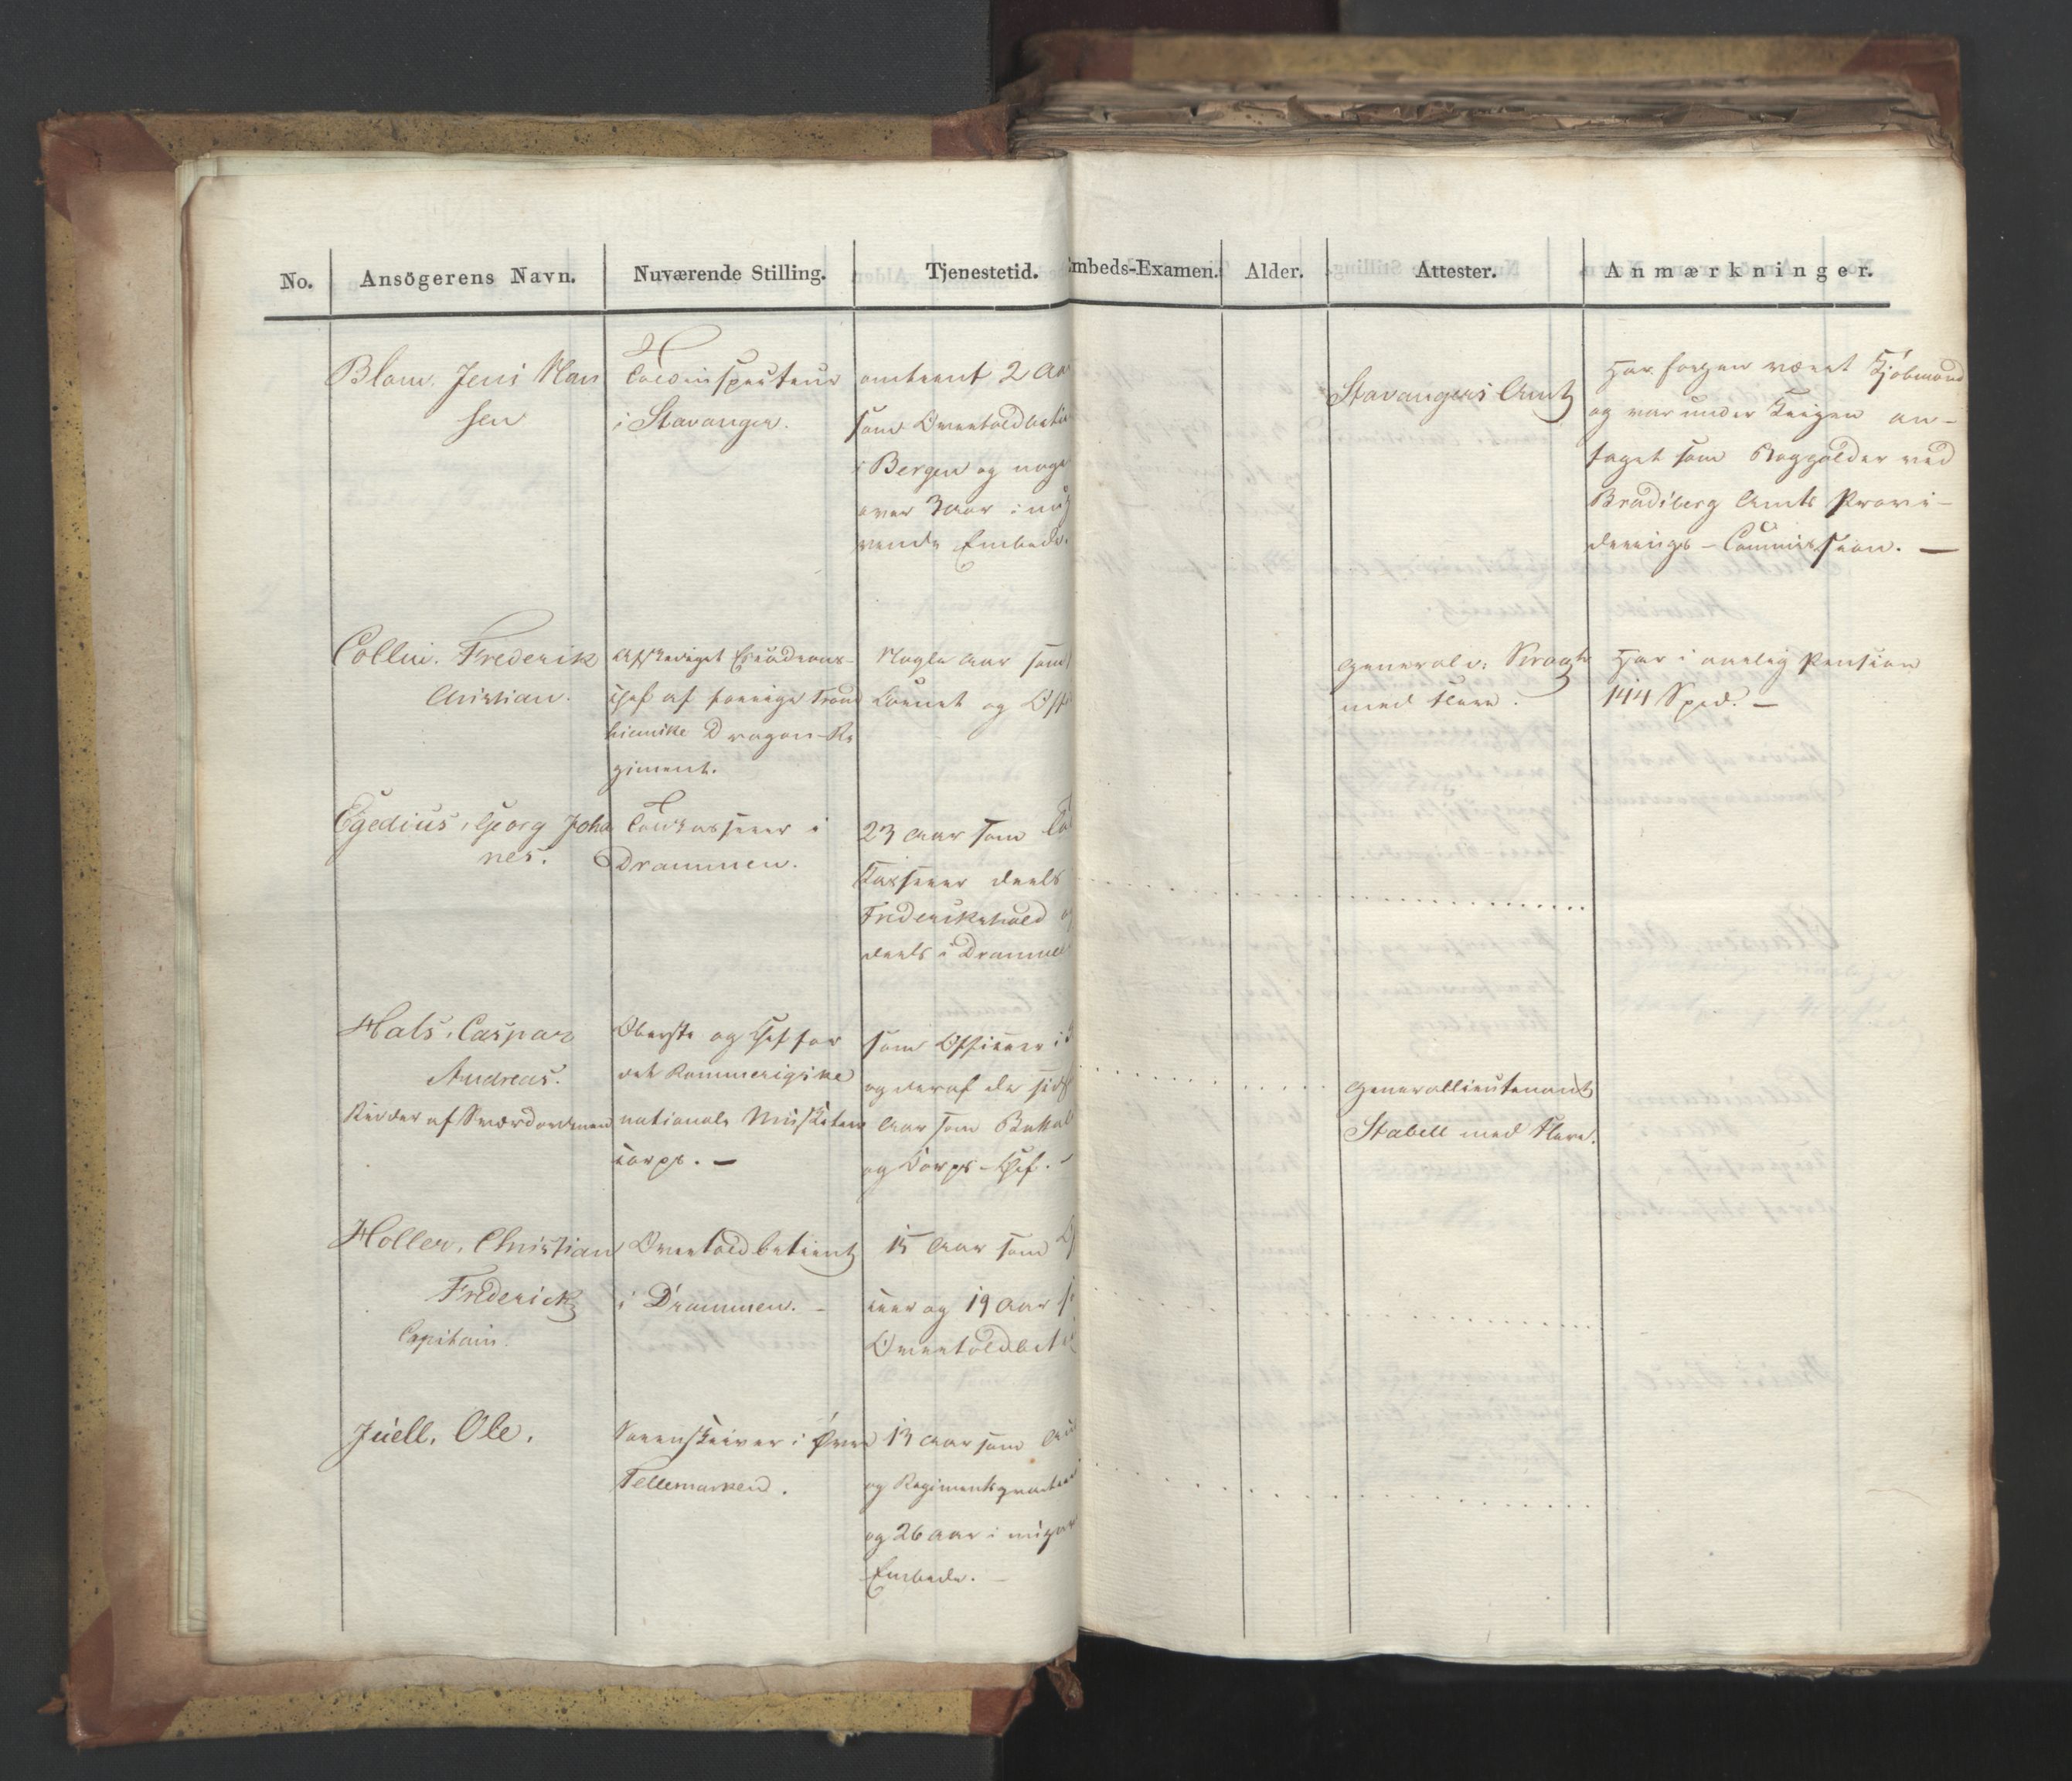 No. Ansögerens Navn. Nuværende Stilling. Tjenestetid. Embeds-Examen. Alder. Attester. Anmærkninger.
Blom. Jens Han
sen
Toldinspecteur
i Stavanger.
omtrent 2 Aar
som Overtoldbetie
i Bergen og noge
over 3 Aar i nu
rende Embede.
Stavangers Amt
Har forhen været Kjöbmand
og var under Krigen an-
taget som Bogholder ved
Bradsberg Amts Provi-
derings-Commission. —
Collin. Frederik
Christian.
Afskediget Escadrons-
chef af forrige Trond
hiemske Dragon-Re
giment.
Nogle Aar som
Cornet og Off
General v: Krogh
med flere.
Har i aarlig Pension
144 Spd. —
Egedius, Georg Joha
nes.
Toldkasserer i
Drammen.
23 Aar som Tol
Casserer deels
Friderikshald og
deels i Dramme
Hals, Caspar
Andreas.
Ridder af Sværdordenen
Oberste og Chef for
det Rommerigske
nationale Musketeer
Corps. —
som Officier i
og deraf de sids
Aar som Batal
og Corps-Chef. -
Generallieutenant
Stabell med flere.
Holler, Christian
Friderick
Capitain.
Overtoldbetient
i Drammen. -
15 Aar som Of
cier og 19 Aar so
Overtoldbeti
Juell, Ole.
Sorenskriver i Øvre
Tellemarken.
13 Aar som Aud
og Regimentsquartee
og 26 Aar i nuvæ
Embede. -